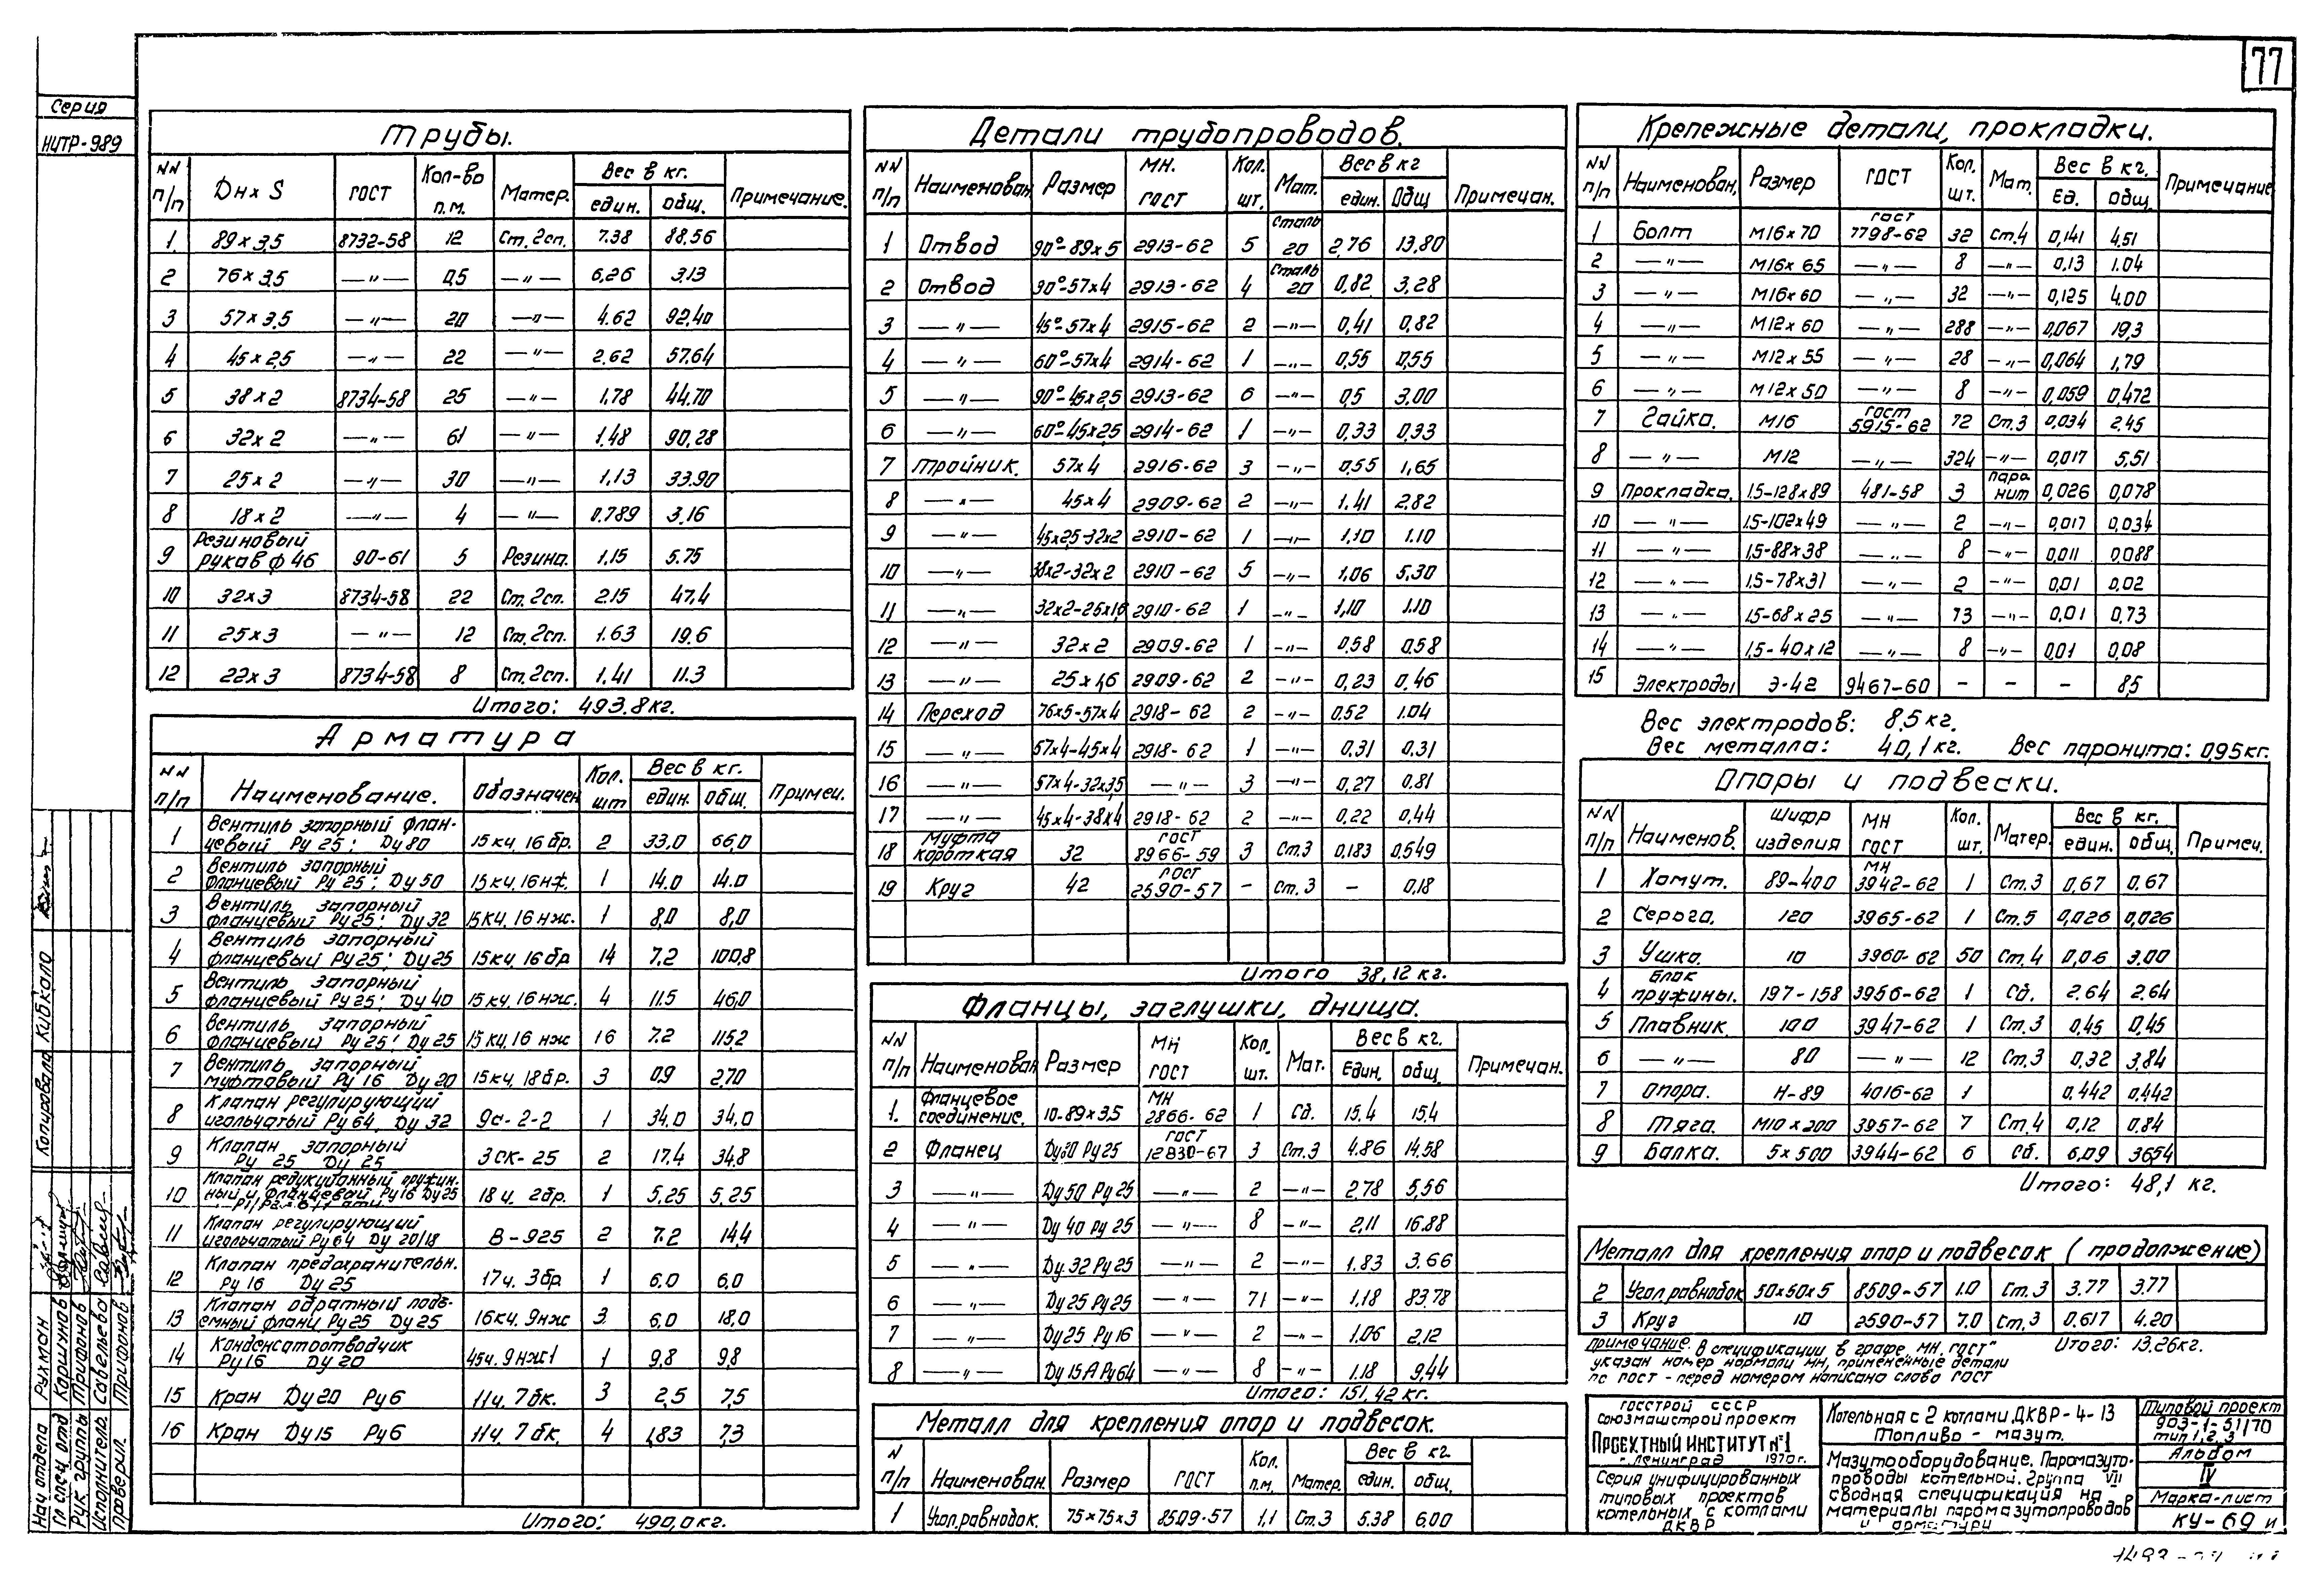 77
Серия
НИТР-989
Трубы.
NN п/п Dн x S ГОСТ Кол-во п.м. Матер. Вес в кг. един. общ. Примечание.
1. 89 x 3.5 8732-58 12 Ст. 2сп. 7.38 88.56
2 76 x 3.5 —"— 0,5 —"— 6,26 3.13
3 57 x 3.5 —"— 20 —"— 4.62 92.40
4 45 x 2,5 —"— 22 —"— 2.62 57.64
5 38 x 2 8734-58 25 —"— 1,78 44.70
6 32 x 2 —"— 61 —"— 1.48 90,28
7 25 x 2 —"— 30 —"— 1,13 33.90
8 18 x 2 —"— 4 —"— 0.789 3.16
9 Резиновый рукав ф 46 90-61 5 Резина. 1,15 5.75
10 32x3 8734-58 22 Ст. 2сп. 2.15 47.4
11 25x3 —"— 12 Ст. 2сп. 1.63 19.6
12 22x3 8734-58 8 Ст. 2сп. 1.41 11.3
Итого: 493.8кг.
Арматура
NN п/п Наименование. Обозначен Кол. шт Вес в кг. един. общ. Примеч.
1 Вентиль запорный фланцевый Ру 25; Dу 80 15кч. 16 бр. 2 33.0 66,0
2 Вентиль запорный фланцевый Ру 25; Dу 50 15кч. 16нж. 1 14.0 14.0
3 Вентиль запорный фланцевый Ру 25; Dу 32 15кч. 16 нж. 1 8,0 8,0
4 Вентиль запорный фланцевый Ру 25; Dу 25 15кч. 16 бр 14 7.2 100,8
5 Вентиль запорный фланцевый Ру 25; Dу 40 15кч. 16 нж. 4 11.5 46,0
6 Вентиль запорный фланцевый Ру 25; Dу 25 15кч. 16 нж 16 7.2 115,2
7 Вентиль запорный муфтовый Ру 16 Dу 20 15кч. 18бр. 3 0,9 2,70
8 Клапан регулирующий игольчатый Ру 64, Dу 32 9с-2-2 1 34,0 34,0
9 Клапан запорный Ру 25 Dу 25 3ск-25 2 17.4 34,8
10 Клапан редукционный пружинный фланцевой Ру 16 Dу 25 18ч. 2бр. 1 5,25 5,25
11 Клапан регулирующий игольчатый Ру 64 Dу 20/18 В-925 2 7.2 14,4
12 Клапан предохранительн. Ру 16 Dу 25 17ч. 3бр 1 6.0 6,0
13 Клапан обратный подъемный фланц. Ру 25 Dу 25 16кч. 9нж 3 6,0 18,0
14 Конденсатоотводчик Ру 16 Dу 20 45ч. 9нж1 1 9,8 9,8
15 Кран Dу 20 Ру 6 11ч. 7бк. 3 2,5 7,5
16 Кран Dу 15 Ру 6 11ч. 7бк. 4 1,83 7,3
Итого: 490,0кг.
Детали трубопроводов.
NN п/п Наименован. Размер МН. ГОСТ Кол. шт. Мат. Вес в кг един. Общ Примечан.
1 Отвод 90°-89x5 2913-62 5 Сталь 20 2,76 13,80
2 Отвод 90°-57x4 2913-62 4 Сталь 20 0,82 3,28
3 —"— 45°-57x4 2915-62 2 —"— 0,41 0,82
4 —"— 60°-57x4 2914-62 1 —"— 0,55 0,55
5 —"— 90°-45x2,5 2913-62 6 —"— 0,5 3.00
6 —"— 60°-45x2,5 2914-62 1 —"— 0,33 0,33
7 Тройник. 57x4 2916-62 3 —"— 0,55 1,65
8 —"— 45x4 2909-62 2 —"— 1.41 2.82
9 —"— 45x2,5-32x2 2910-62 1 —"— 1,10 1.10
10 —"— 38x2-32x2 2910-62 5 —"— 1,06 5,30
11 —"— 32x2-25x1,6 2910-62 1 —"— 1,10 1.10
12 —"— 32x2 2909-62 1 —"— 0,58 0,58
13 —"— 25x1,6 2909-62 2 —"— 0,23 0,46
14 Переход 76x5-57x4 2918-62 2 —"— 0.52 1.04
15 —"— 57x4-45x4 2918-62 1 —"— 0.31 0,31
16 —"— 57x4-32x3,5 —"— 3 —"— 0,27 0,81
17 —"— 45x4-38x4 2918-62 2 —"— 0,22 0,44
18 Муфта короткая 32 ГОСТ 8966-59 3 Ст.3 0,183 0,549
19 Круг 42 ГОСТ 2590-57 – Ст. 3 – 0,18
Итого 38,12 кг.
Фланцы, заглушки, днища.
NN п/п Наименован Размер МН ГОСТ Кол. шт. Мат. Вес в кг. Един. общ. Примечан.
1. Фланцевое соединение. 10-89x3.5 МН 2866-62 1 Сб. 15.4 15.4
2 Фланец Dу80 Ру 25 ГОСТ 12830-67 3 Ст.3 4.86 14.58
3 —"— Dу 50 Ру 25 —"— 2 —"— 2,78 5,56
4 —"— Dу 40 Ру 25 —"— 8 —"— 2,11 16.88
5 —"— Dу 32 Ру 25 —"— 2 —"— 1.83 3.66
6 —"— Dу 25 Ру 25 —"— 71 —"— 1,18 83.78
7 —"— Dу 25 Ру 16 —"— 2 —"— 1.06 2.12
8 —"— Dу 15А Ру 64 —"— 8 —"— 1.18 9,44
Итого: 151,42 кг.
Металл для крепления опор и подвесок.
N п/п Наименован. Размер ГОСТ Кол. п.м. Матер. Вес в кг един. общ.
1 Угол.равнобок. 75x75x3 8509-57 1,1 Ст.3 5.38 6.00
Крепежные детали, прокладки.
NN п/п Наименован. Размер ГОСТ Кол. шт. Мат. Вес в кг. Ед. Общ. Примечание
1 Болт М16x70 ГОСТ 7798-62 32 ст.4 0,141 4,51
2 —"— М16x65 —"— 8 —"— 0,13 1.04
3 —"— М16x60 —"— 32 —"— 0,125 4.00
4 —"— М12x60 —"— 288 —"— 0,067 19,3
5 —"— М12x55 —"— 28 —"— 0,064 1,79
6 —"— М12x50 —"— 8 —"— 0,059 0,472
7 Гайка. М16 ГОСТ 5915-62 72 Ст.3 0,034 2,45
8 —"— М12 —"— 324 —"— 0,017 5,51
9 Прокладка. 1.5-128x89 481-58 3 паронит 0,026 0,078
10 —"— 1.5-102x49 —"— 2 —"— 0,017 0,034
11 —"— 1,5-88x38 —"— 8 —"— 0,011 0,088
12 —"— 1.5-78x31 —"— 2 —"— 0,01 0,02
13 —"— 1.5-68x25 —"— 73 —"— 0,01 0,73
14 —"— 1,5-40x12 —"— 8 —"— 0,01 0,08
15 Электроды Э-42 9467-60 – – – 8,5
Вес электродов: 8.5 кг.
Вес металла: 40,1кг. Вес паронита: 0,95кг.
Опоры и подвески.
NN п/п Наименов. Шифр изделия МН ГОСТ Кол. шт. Матер. Вес в кг. един. общ. Примеч.
1 Хомут. 89-400 МН 3942-62 1 Ст.3 0,67 0.67
2 Серьга. 120 3965-62 1 Ст.5 0,026 0,026
3 Ушко. 10 3960-62 50 Ст.4 0,06 3.00
4 Блок пружины. 197-158 3956-62 1 Сб. 2.64 2.64
5 Плавник. 100 3947-62 1 Ст.3 0,45 0,45
6 —"— 80 —"— 12 Ст.3 0,32 3,84
7 Опора. Н-89 4016-62 1 0,442 0,442
8 Тяга. М10x200 3957-62 7 Ст.4 0,12 0.84
9 Балка. 5x500 3944-62 6 Сб. 6,09 36,54
Итого: 48,1 кг.
Металл для крепления опор и подвесок (продолжение)
2 Угол.равнобок 50x50x5 8509-57 1.0 Ст.3 3.77 3.77
3 Круг 10 2590-57 7.0 Ст.3 0.617 4.20
Итого: 13.26кг.
Примечание. В спецификации в графе "МН, ГОСТ"
указан номер нормали МН, примененные детали
по ГОСТ - перед номером написано слово ГОСТ
Госстрой СССР
Союзмашстройпроект
Проектный институт №1
г. Ленинград 1970г.
Серия унифицированных
типовых проектов
котельных с котлами
ДКВР
Котельная с 2 котлами ДКВР-4-13
Топливо - мазут.
Мазутооборудование. Паромазуто-
проводы котельной. Группа VII
Сводная спецификация на
материалы паромазутопроводов
и арматуры
Типовой проект
903-1-51/70
тип 1,2,3
Альбом
IV
Марка-лист
КУ-69 и
Копировала Кибкало
Нач отдела Рухман
Гл спец отд Коршунов
Рук. группы Трифонов
Исполнитель. Савельева
Проверил. Трифонов